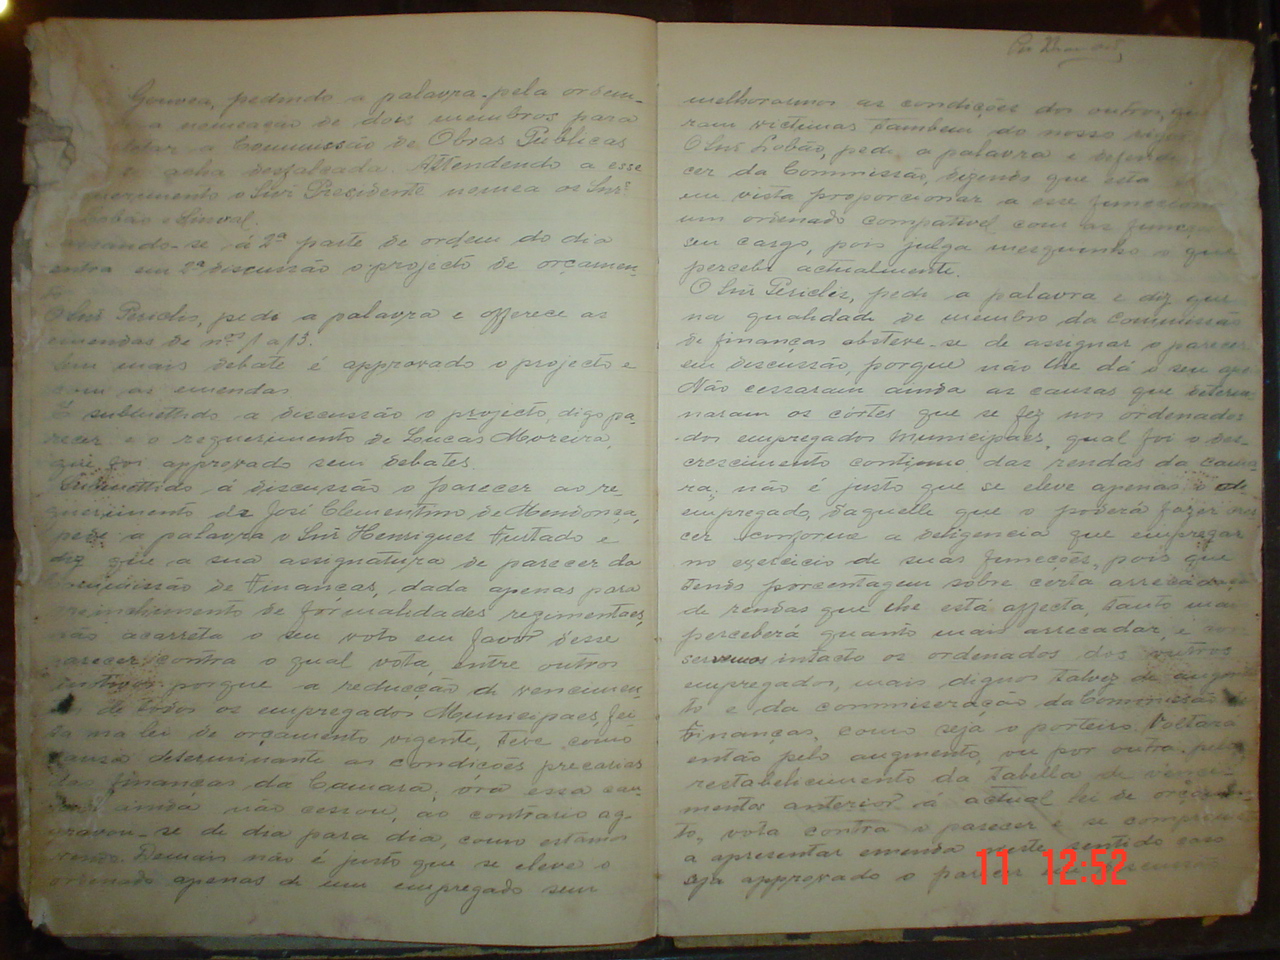 Gouvea, pedindo a palavra pela ordem
nomeação de dois membros para
a Commissão de Obras Publicas
se acha desfalcada. Attendendo a esse
o Snr Presidente nomea os Snrs
Lobão e
se á 2ª parte de ordem do dia
entra em 2ª discussão o projecto de orçamen-
O Snr Pericles, pede a palavra e offerece as
emendas de nos 1 a 13.
Sem mais debate é approvado o projecto e
com as emendas
É submettido a discussão o projecto, digo pa-
recer e o requerimento de Lucas Moreira,
que foi approvado sem debates.
Submettido á discussão o parecer ao re-
querimento de José Clementino de Mendonsa,
pede a palavra o Snr Henriques Furtado e
diz que a sua assignatura de parecer da
Commissão de Finanças, dada apenas para
preenchimento de formalidades regimentaes,
não acarreta o seu voto em favor desse
parecer, contra o qual vota, entre outros
motivos porque a reducção de vencimen
de todos os empregados Municipaes, fei-
ta na lei de orçamento vigente, teve como
causa determinante as condições precarias
das finanças da Camara; óra essa cau-
sa ainda não cessou, ao contrario ag-
gravou-se de dia para dia, como estamos
vendo. Demais não é justo que se eleve o
ordenado apenas de um empregado sem
melhorarmos as condições dos outros, que
ram victimas tambem do nosso rigor
O Snr Lobão, pede a palavra e
cer da Commissão, dizendo que esta
em vista proporcionar a esse
um ordenado compativel com as
seu cargo, pois julga mesquinho o que
percebe actualmente.
O Snr Pericles, pede a palavra e diz que
na qualidade de membro da Commissão
de finanças absteve-se de assignar o parecer
em discussão, porque não lhe dá o seu
Não cessaram ainda as causas que determi
naram os córtes que se fez nos ordenados
dos empregados municipaes, qual foi o des-
crescimento continuo das rendas da Cama-
ra; não é justo que se eleve apenas o de
empregado, daquelle que o poderá fazer cres
cer conforme a deligencia que empregar
no exercicio de suas funcções, pois que
tendo porcentagem sobre certa arrecadação
de rendas que lhe está affecta, tanto mais
perceberá quanto mais arrecadar, e
servemos intacto os ordenados dos outros
empregados, mais dignos talvez de augmen
to e da commiseração da Commissão
Finanças, como seja o porteiro. Votará
então pelo augmento, ou por outra pelo
restabelecimento da tabella de venci-
mentos anterior á actual lei de orçamen
to, vota contra o parecer e se compromette
a apresentar emenda neste sentido caso
seja approvado o parecer em discussão
11 12:52